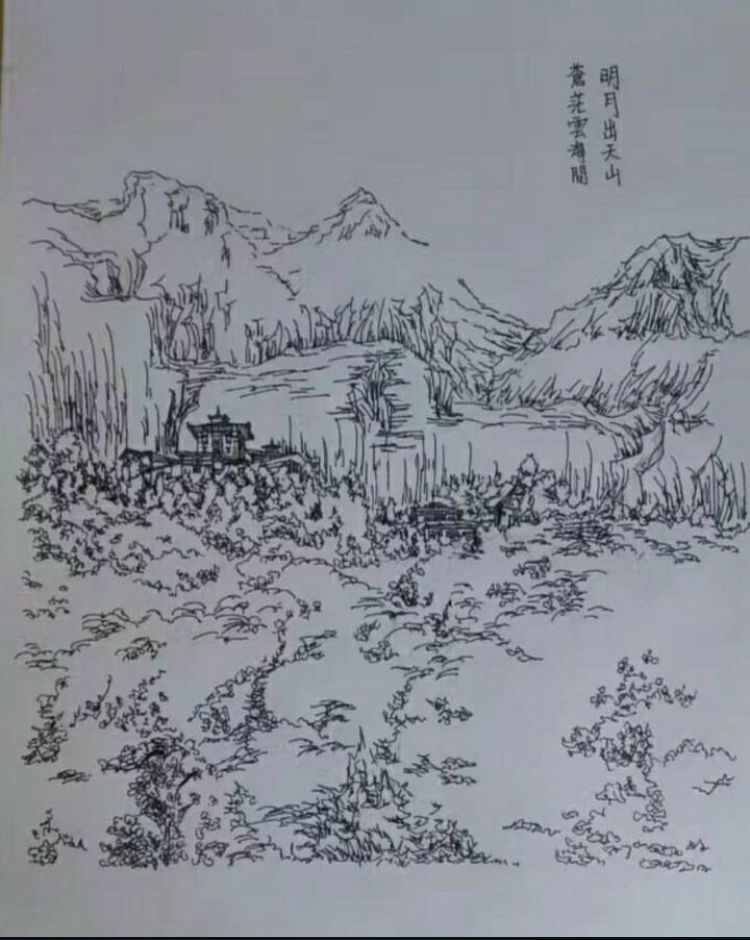 明月出天山
蒼茫雲海間